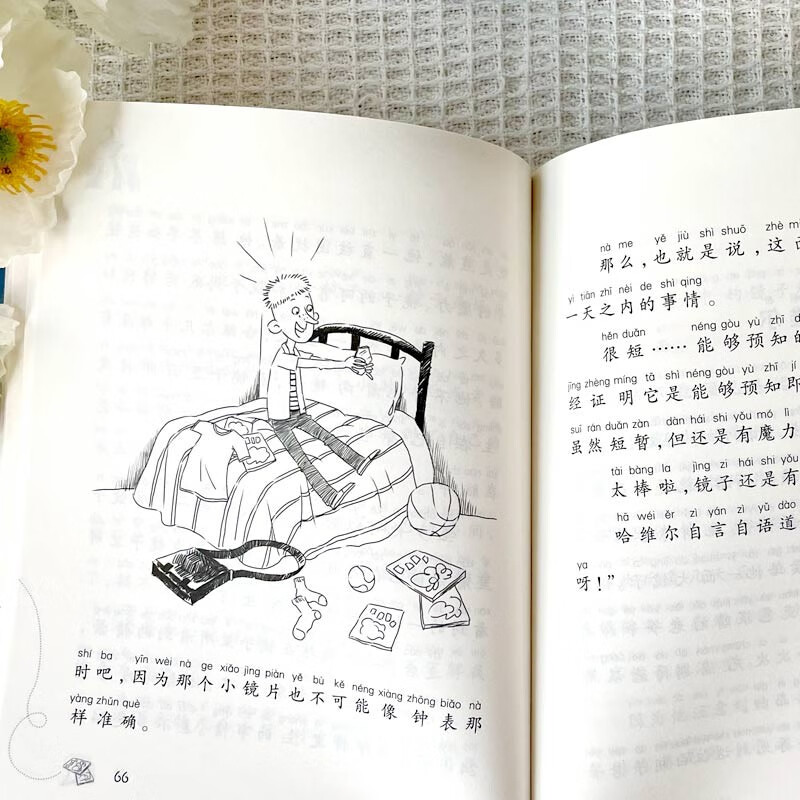 shí ba yīn wèi nà ge xiǎo jìng piàn yě bù kě néng xiàng zhōng biǎo nà
时吧，因为那个小镜片也不可能像钟表那
yàng zhǔn què
样准确。
66
nà me yě jiù shì shuō zhè
那么，也就是说，这
yì tiān zhī nèi de shì qing
一天之内的事情。
hěn duǎn néng gòu yù zhī
很短……能够预知
jīng zhèng míng tā shì néng gòu yù zhī jí
经证明它是能够预知即
suī rán duǎn zàn dàn hái shi yǒu mó lì
虽然短暂，但还是有魔力
tài bàng la jìng zi hái shi yǒu
太棒啦，镜子还是有
hā wéi ěr zì yán zì yǔ dào
哈维尔自言自语道
ya
呀！”